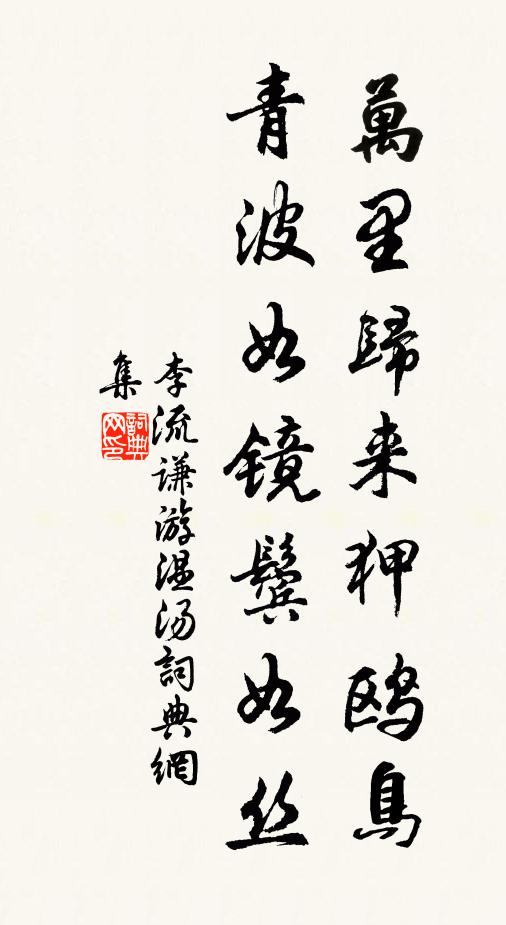 萬里歸来狎鸥鳥
青波如镜鬓如丝
李流谦游温汤詞典網
集
詞典
网印